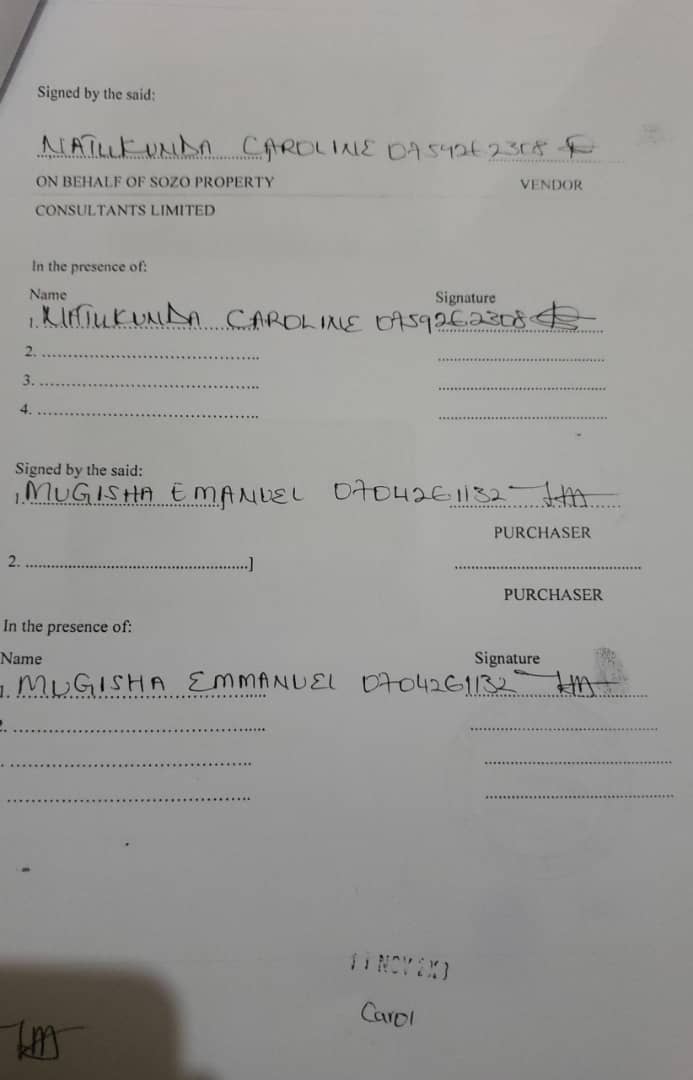 Signed by the said:
NATUKUNDA CAROLINE
ON BEHALF OF SOZO PROPERTY VENDOR
CONSULTANTS LIMITED
In the presence of:
Name Signature
1. NATUKUNDA CAROLINE 0759262308
2.
3.
4.
Signed by the said:
1. MUGISHA EMANUEL 0704261132
PURCHASER
2. ]
PURCHASER
In the presence of:
Name Signature
1. MUGISHA EMMANUEL 0704261132
NOV
Carol